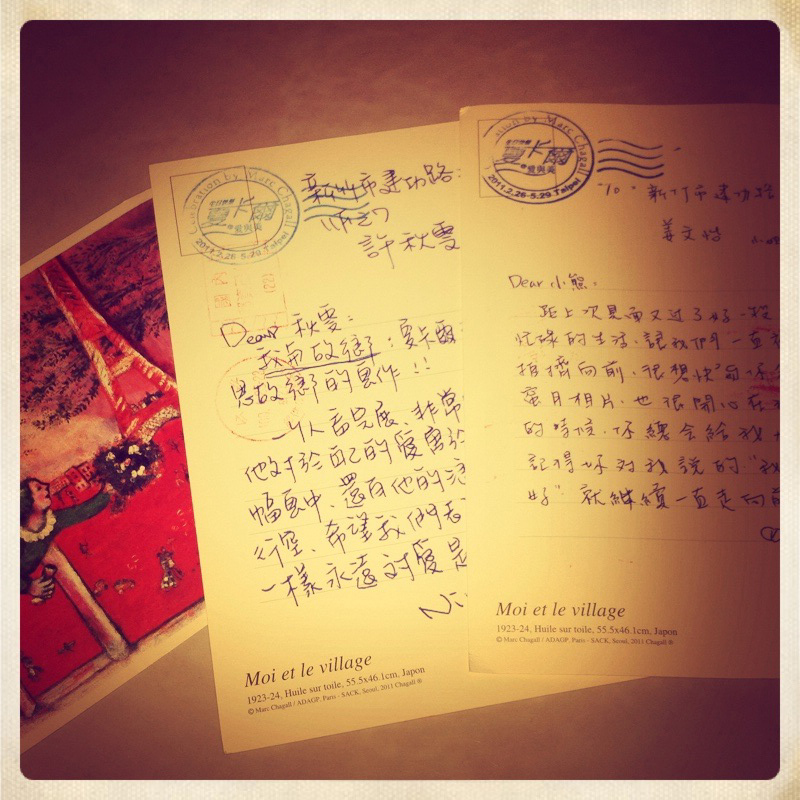 Celebration by Marc Chagall
夏卡爾
愛與美
2011.2.26-5.29 Taipei
新竹市建功路
許秋雯
Dear 秋雯:
我與故鄉:夏卡爾
思故鄉的畫作!!
一個人看完展,非常
他對於自己的愛寓於
幅畫中,還有他的
行空、希望我們
一樣永遠對愛是
Ni
Moi et le village
1923-24, Huile sur toile, 55.5x46.1cm, Japon
© Marc Chagall / ADAGP, Paris - SACK, Seoul, 2011 Chagall ®
by Marc Chagall
夏卡爾
愛與美
2011.2.26-5.29 Taipei
新竹市建功路
姜文
Dear 小熊:
距上次見面又過了好一段
忙碌的生活,讓我們一直
向前,很想快
蜜月相片,也很開心在
的時候,你總會給我
記得你對我說的"我
好" 就繼續一直走向前
Moi et le village
1923-24, Huile sur toile, 55.5x46.1cm, Japon
© Marc Chagall / ADAGP, Paris - SACK, Seoul, 2011 Chagall ®